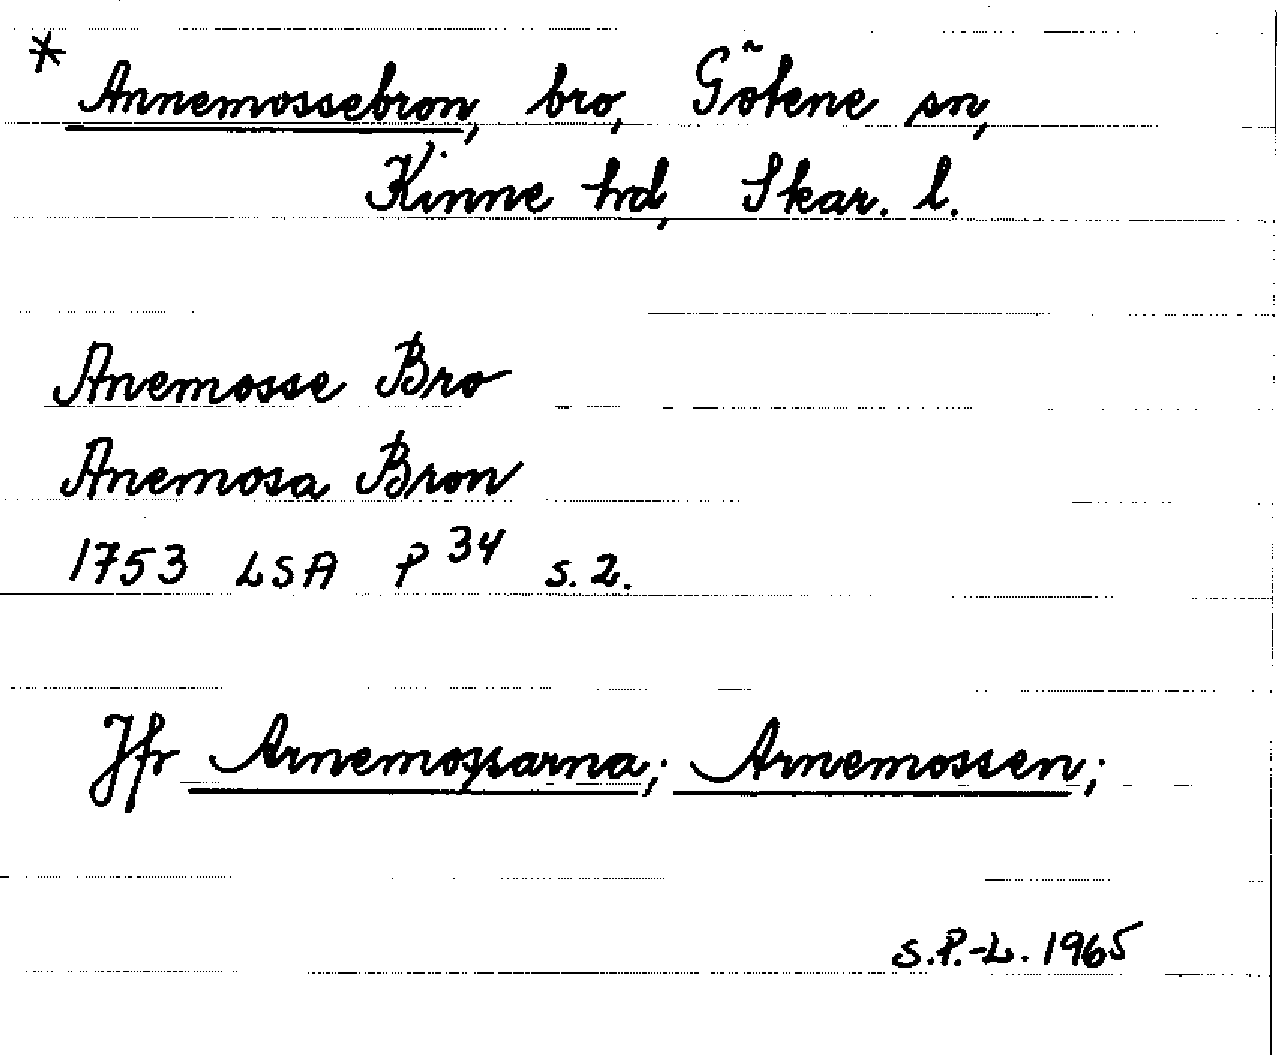 * Annemossebron, bro, Götene sn,
Kinne hd, Skar. l.
Anemosse Bro
Anemosa Bron
1753 LSA P 34 s. 2.
Jfr Arnemossarna; Arnemossen;
S.P.-L. 1965